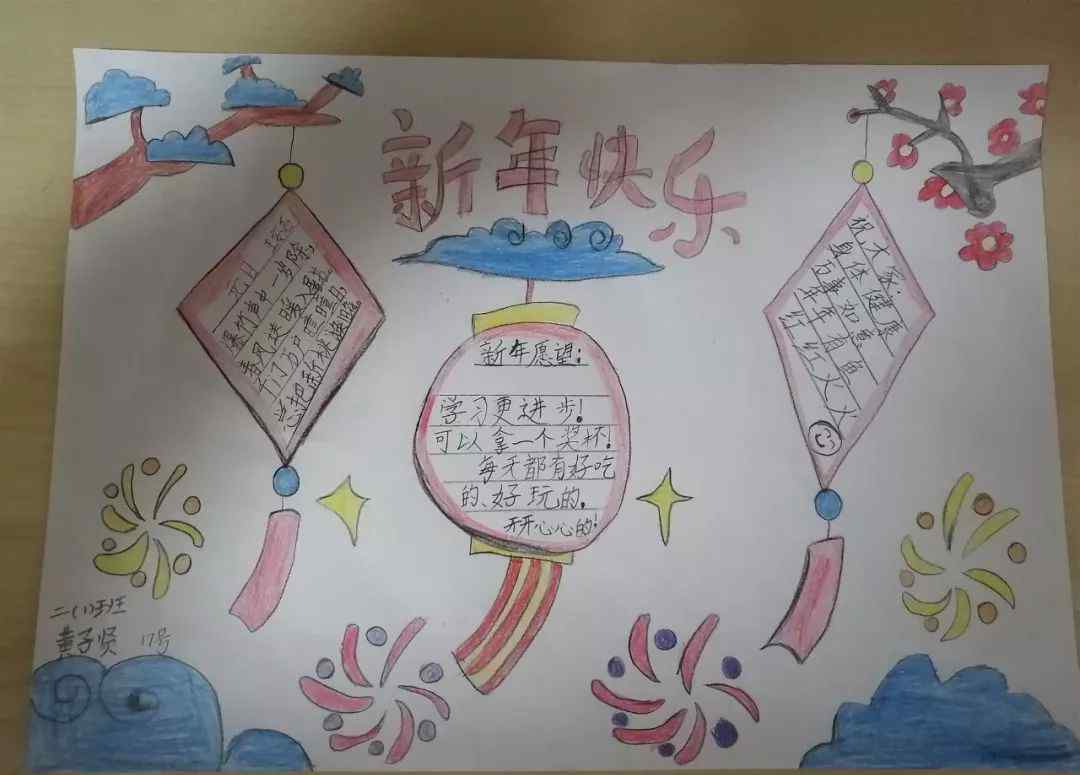 新年快乐
元日
竹声中一岁除,
春风送暖入
千门万户曈曈日
总把新桃
新年愿望:
学习更进步!
可以拿一个奖杯!
每天都有好吃
的、好玩的。
开开心心的!
祝大家:
身体健康
万事如意
年年有鱼
红红火火
二(1)班
黄子贤 17号